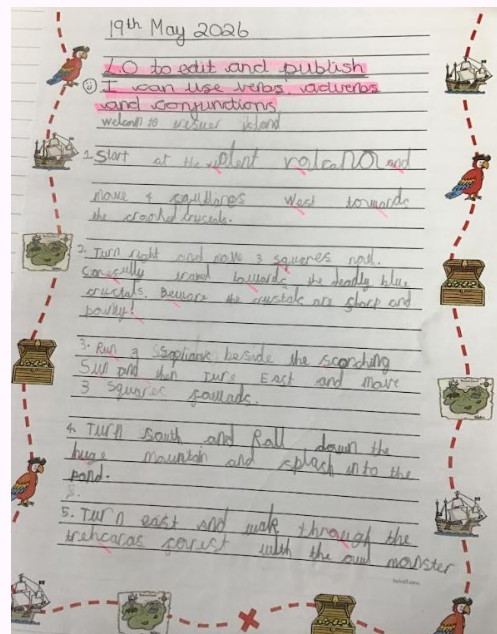 19th May 2026
LO to edit and publish
I can use verbs, adverbs
and conjunctions
welcom to island
1. Start at the volcano and
move 4 West towards
the crooked crustals.
2. Turn right and move 3 squares
Carefully towards the deadly blue
crustals. Beware the crustals are sharp and
3. Run 3 beside the scorching
Sun and then Turn East and move
3 Squares
4. Turn South and Roll down the
huge mountain and splash into the
pond.
5. Turn east and walk through the
forist with the monster